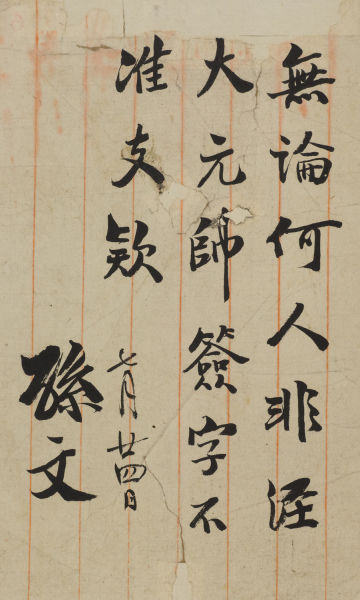 無論何人非經
大元帥簽字不
准支款
七月廿四日
孫文